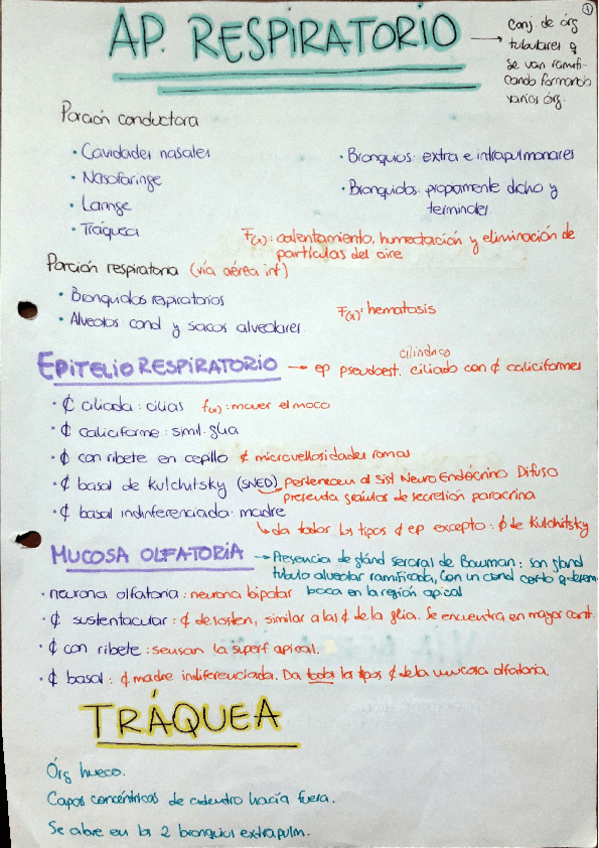 1
AP. RESPIRATORIO → conj. de órg
tubulares q
se van ramifi-
cando formando
varios órg.
Porción conductora
· Cavidades nasales
· Nasofaringe
· Laringe
· Tráquea
· Bronquios: extra e intrapulmonares
· Bronquiolos: propiamente dicho y
terminales
F(x): calentamiento, humectación y eliminación de
partículas del aire
Porción respiratoria (vía aérea inf)
· Bronquiolos respiratorios
· Alveolos: cond y sacos alveolares.
F(x): hematosis
EPITELIO RESPIRATORIO → ep pseudoest. cilíndrico ciliado con ¢ caliciformes
· ¢ ciliada: cilias f(x): mover el moco
· ¢ caliciforme: simil. glia
· ¢ con ribete en cepillo ¢ microvellosidades romas
· ¢ basal de Kulchitsky (SNED) pertenecen al Sist Neuro Endócrino Difuso
presenta gránulos de secreción paracrina
· ¢ basal indiferenciada: madre
↳ da todos los tipos ¢ ep excepto: ¢ de Kulchitsky
MUCOSA OLFATORIA → Presencia de gland serosal de Bowman: son gland
tubulo alveolar ramificada, con un cond corto q desem-
boca en la región apical
· neurona olfatoria: neurona bipolar
· ¢ sustentacular: ¢ de sosten, similar a las ¢ de la glia. Se encuentra en mayor cant.
· ¢ con ribete: sensan la superf apical.
· ¢ basal: ¢ madre indiferenciada. Da todos los tipos ¢ de la mucosa olfatoria.
TRÁQUEA
Órg hueco.
Capas concéntricas de adentro hacía fuera.
Se abre en los 2 bronquios extrapulm.